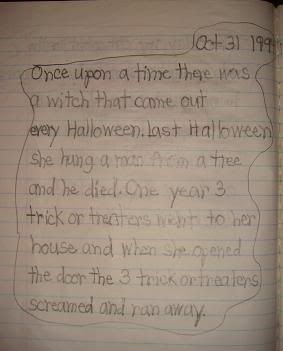 Oct 31 199
Once upon a time there was
a witch that came out
every Halloween. Last Halloween
she hung a man from a tree
and he died. One year 3
trick or treaters went to her
house and when she opened
the door the 3 trick or treaters
screamed and ran away.